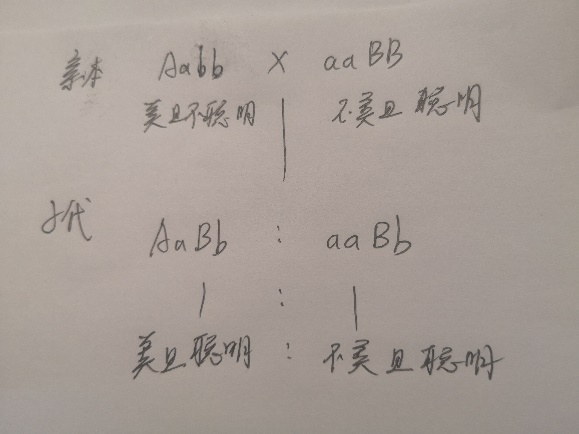 亲本 Aabb × aaBB
美且不聪明 不美且聪明
子代 AaBb : aaBb
1 : 1
美且聪明 : 不美且聪明